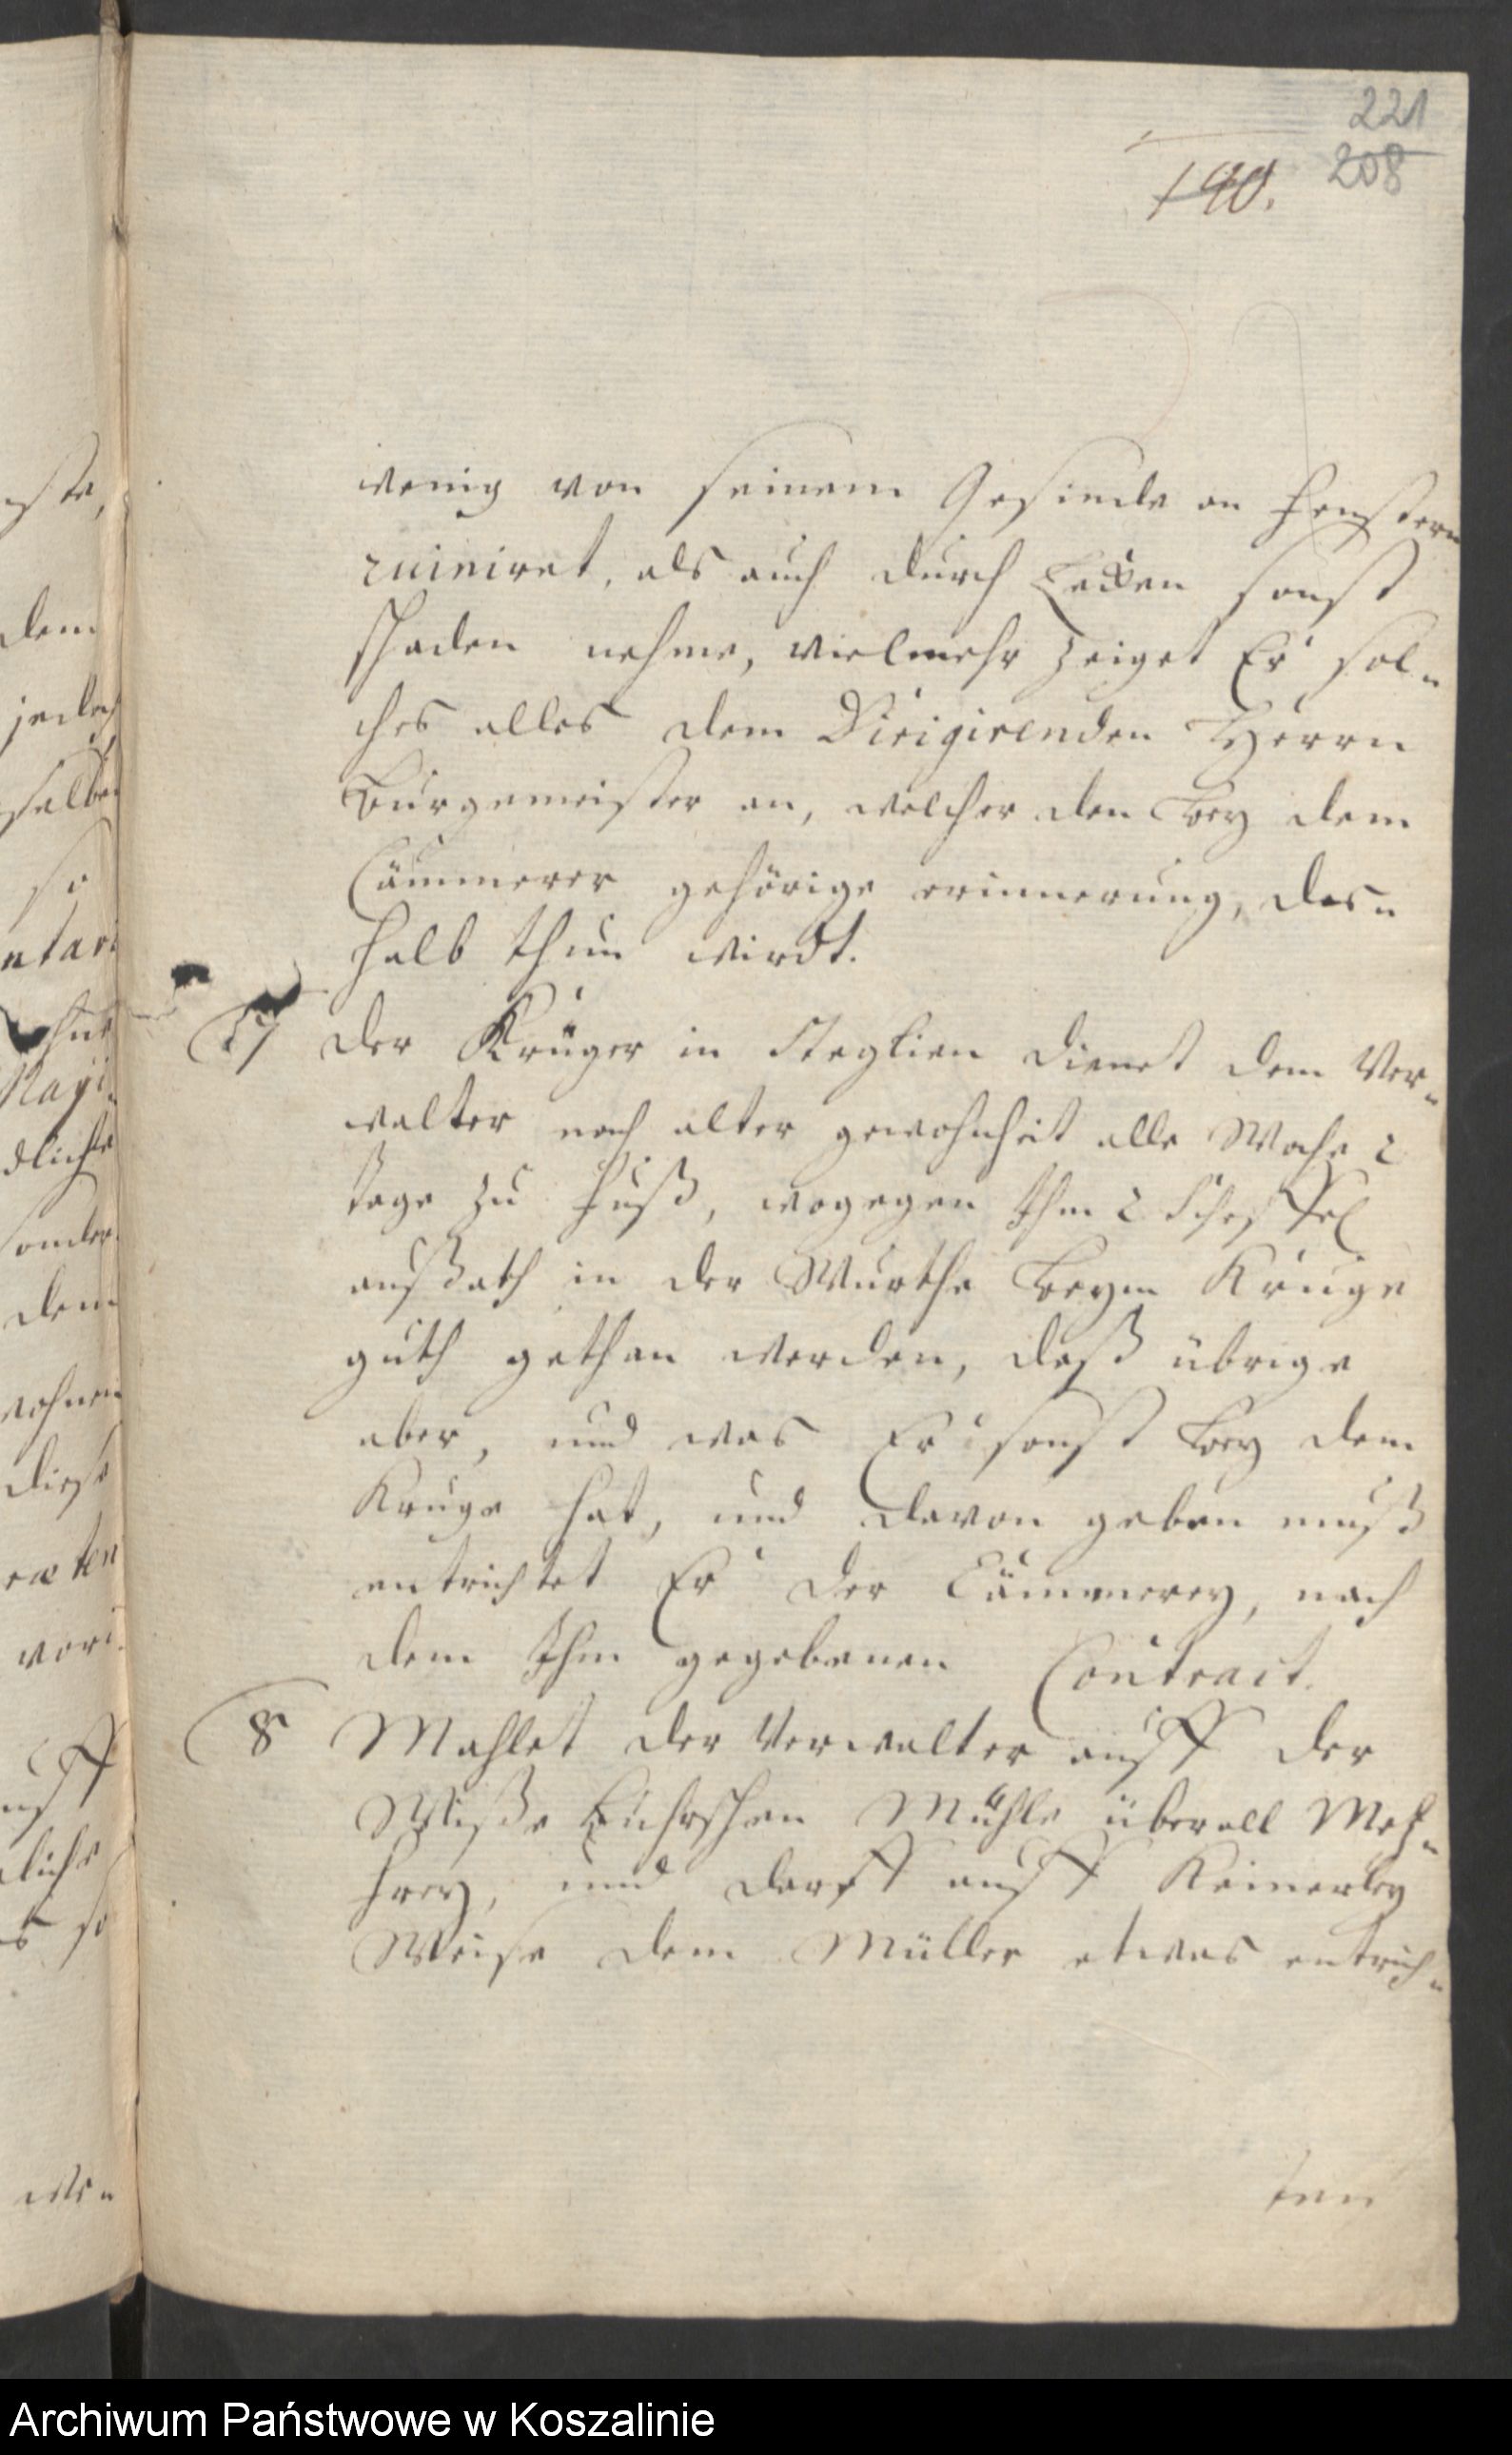 221
208
190.
wenig von seinem Gesinde an fenstern
ruiniret, als auch durch Lecken sonst
schaden nehme, vielmehr zeiget Er sol-
ches alles dem Dirigirenden Herrn
Burgemeister an, welcher den bey dem
Cämmerer gehörige erinnerung, des-
halb thun wirdt.
7 Der Krüger in Steglien dienet dem Ver-
walter nach alter gewohnheit alle Woche 2
tage zu fuß, wogegen Ihm 2 Scheffel
außath in der Wurthe beym Kruge
guth gethan werden, daß übrige
aber, und was Er sonst bey dem
Kruge hat, und davon geben muß
entrichtet Er der Cämmerey, nach
dem Ihm gegebenen Contract.
8 Mahlet der Verwalter auff der
Mühle überall Metz-
frey, und darff auff Keinerley
Weise dem Müller etwas entrich-
ten
dem
jedoch
selben
so
sonder
dem
wohnen
diese
auff
so
we-
Archiwum Państwowe w Koszalinie